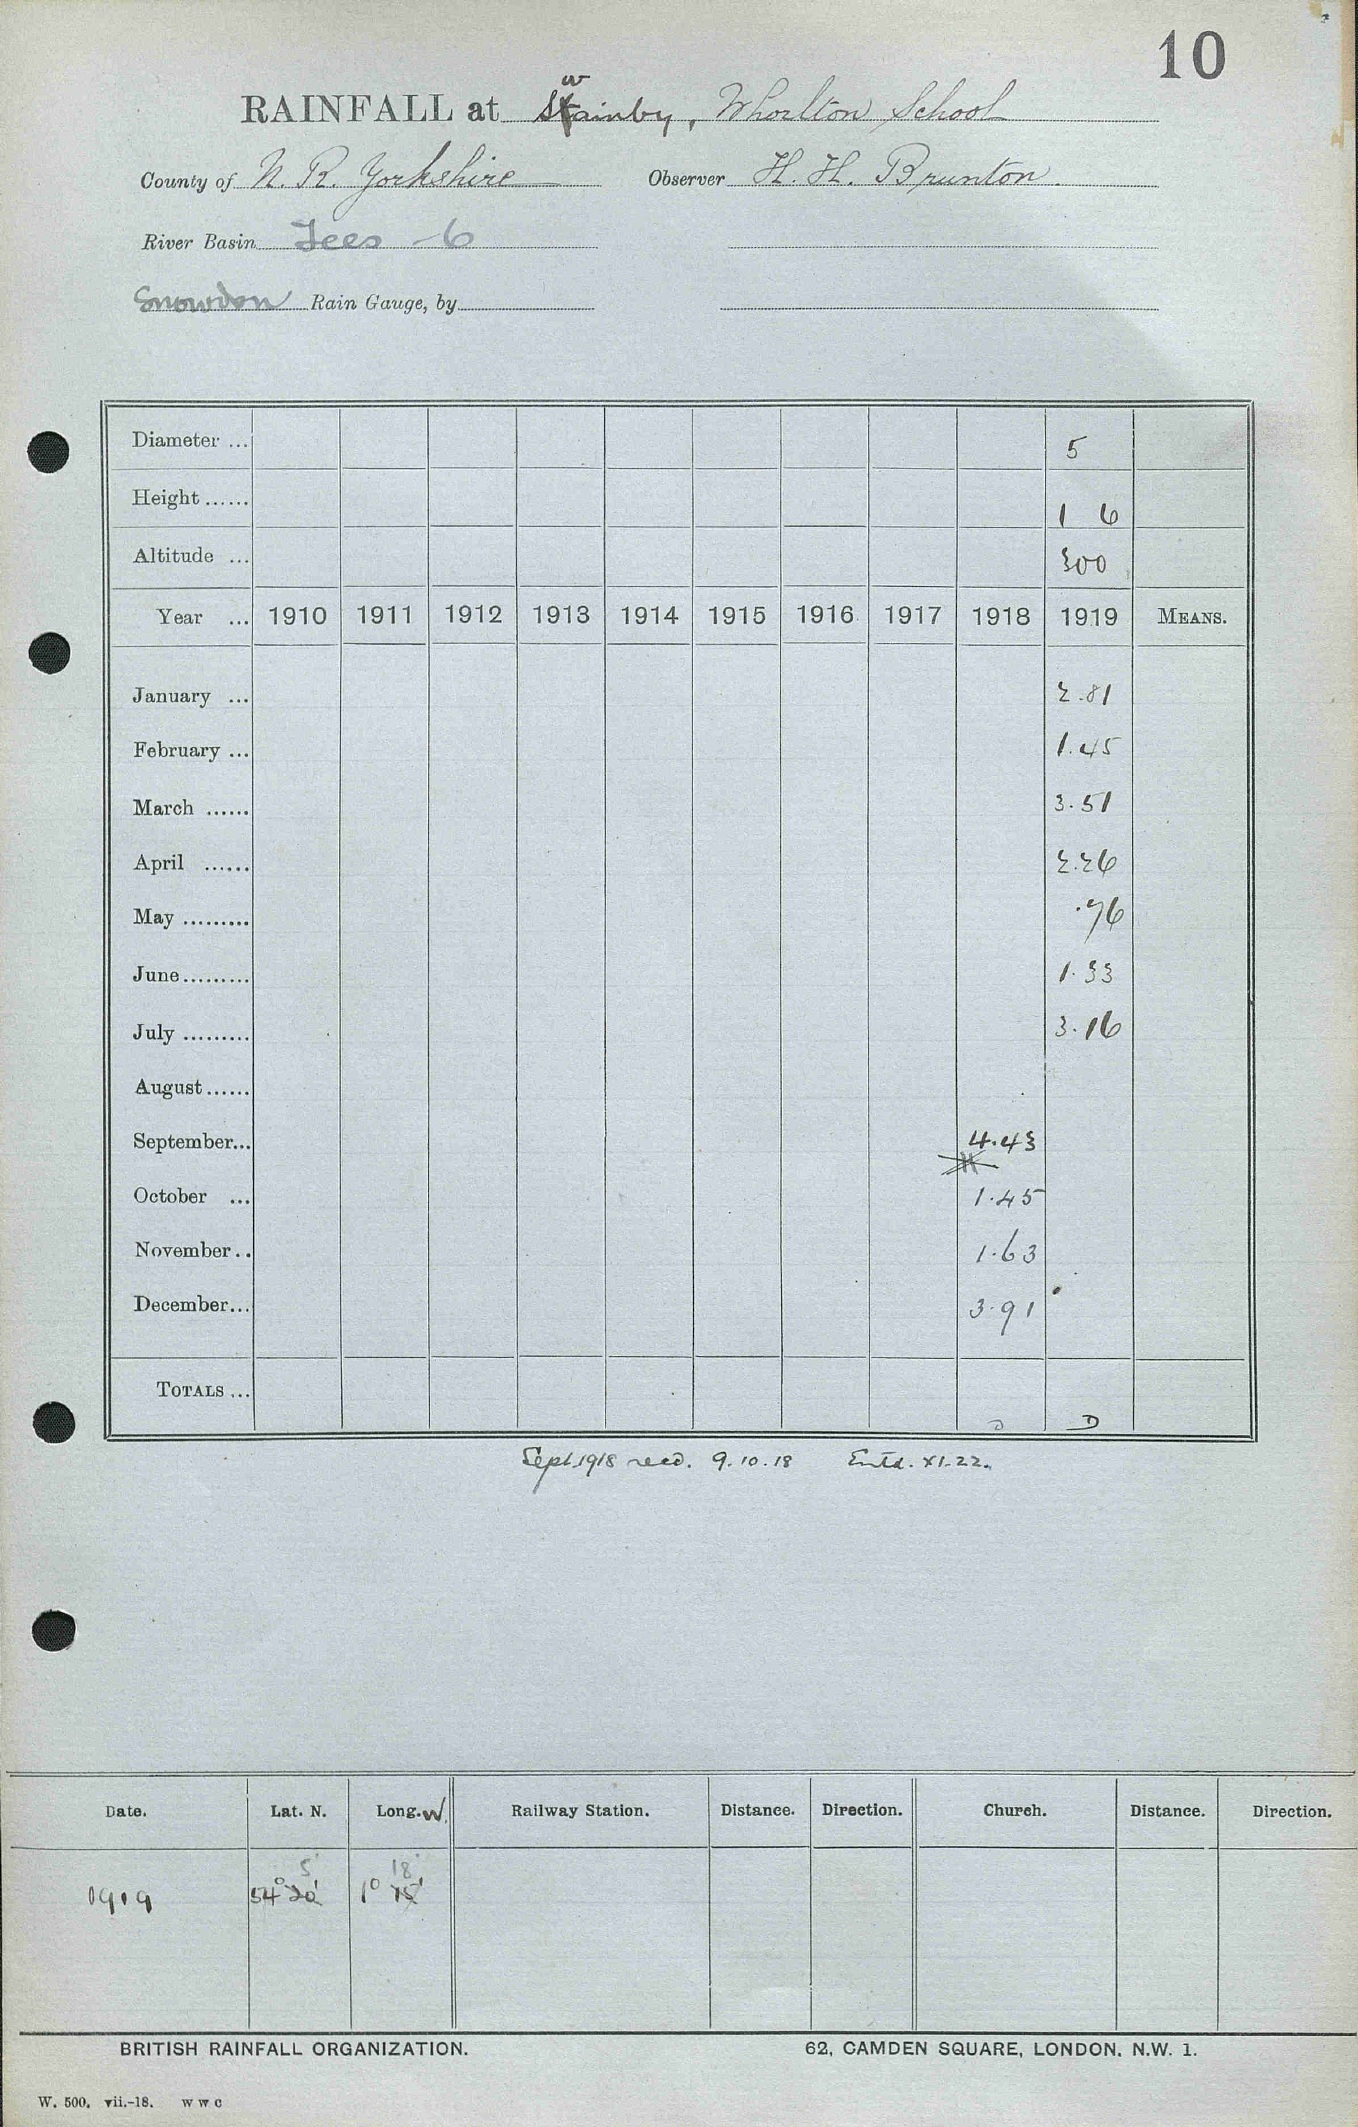 10
RAINFALL at Swainby, Whorlton School
County of N. R. Yorkshire Observer H. H. Brunton.
River Basin Tees 6
Snowdon Rain Gauge, by
Diameter ... 5
Height ...... 1 6
Altitude ... 300
Year ... 1910 1911 1912 1913 1914 1915 1916 1917 1918 1919 MEANS.
January ... 2.81
February ... 1.45
March ...... 3.51
April ...... 2.26
May ......... .76
June......... 1.33
July ......... 3.16
August......
September... 4.43
October ... 1.45
November.. 1.63
December... 3.91
TOTALS ... D D
Sept. 1918 recd. 9.10.18 Entd. XI.22.
Date. Lat. N. Long. W. Railway Station. Distance. Direction. Church. Distance. Direction.
5' 18'
1919 54° 20' 1° 15'
BRITISH RAINFALL ORGANIZATION. 62, CAMDEN SQUARE, LONDON, N.W. 1.
W. 500. vii.-18. w w c